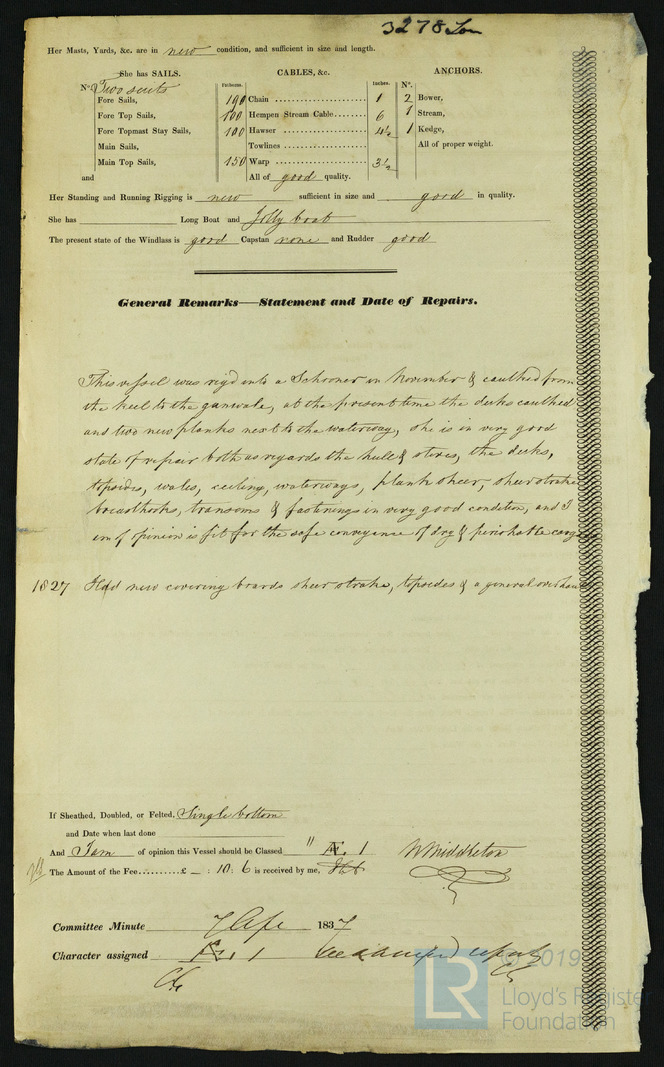 3278 Lon
Her Masts, Yards, &c. are in new condition, and sufficient in size and length.
She has SAILS. CABLES, &c. ANCHORS.
No. Two suits Fathoms. Inches. No.
Fore Sails, 190 Chain 1 2 Bower,
Fore Top Sails, 100 Hempen Stream Cable 6 1 Stream,
Fore Topmast Stay Sails, 100 Hawser 4½ 1 Kedge,
Main Sails, Towlines All of proper weight.
Main Top Sails, 150 Warp 3½
and All of good quality.
Her Standing and Running Rigging is new sufficient in size and good in quality.
She has Long Boat and Jolly boat
The present state of the Windlass is good Capstan none and Rudder good
General Remarks—Statement and Date of Repairs.
This vessel was rigd into a Schooner in November & caulked from
the keel to the gunwale, at the present time the decks caulked
and two new planks next to the waterway, she is in very good
state of repair both as regards the hull & stores, the decks,
topsides, wales, ceiling, waterways, plank sheer, sheer strake
breasthooks, transoms & fastenings in very good condition, and I
am of opinion is fit for the safe conveyance of dry & perishable cargo
1827 Had new covering boards sheer strake, topsides & a general overhaul
If Sheathed, Doubled, or Felted, Single bottom
and Date when last done
And I am of opinion this Vessel should be Classed " Æ 1
The Amount of the Fee £ — : 10 : 6 is received by me,
W Middleton
Committee Minute 7 Apl 1837
Character assigned Æ 1
© 2019
LR
Lloyd's Register
Foundation